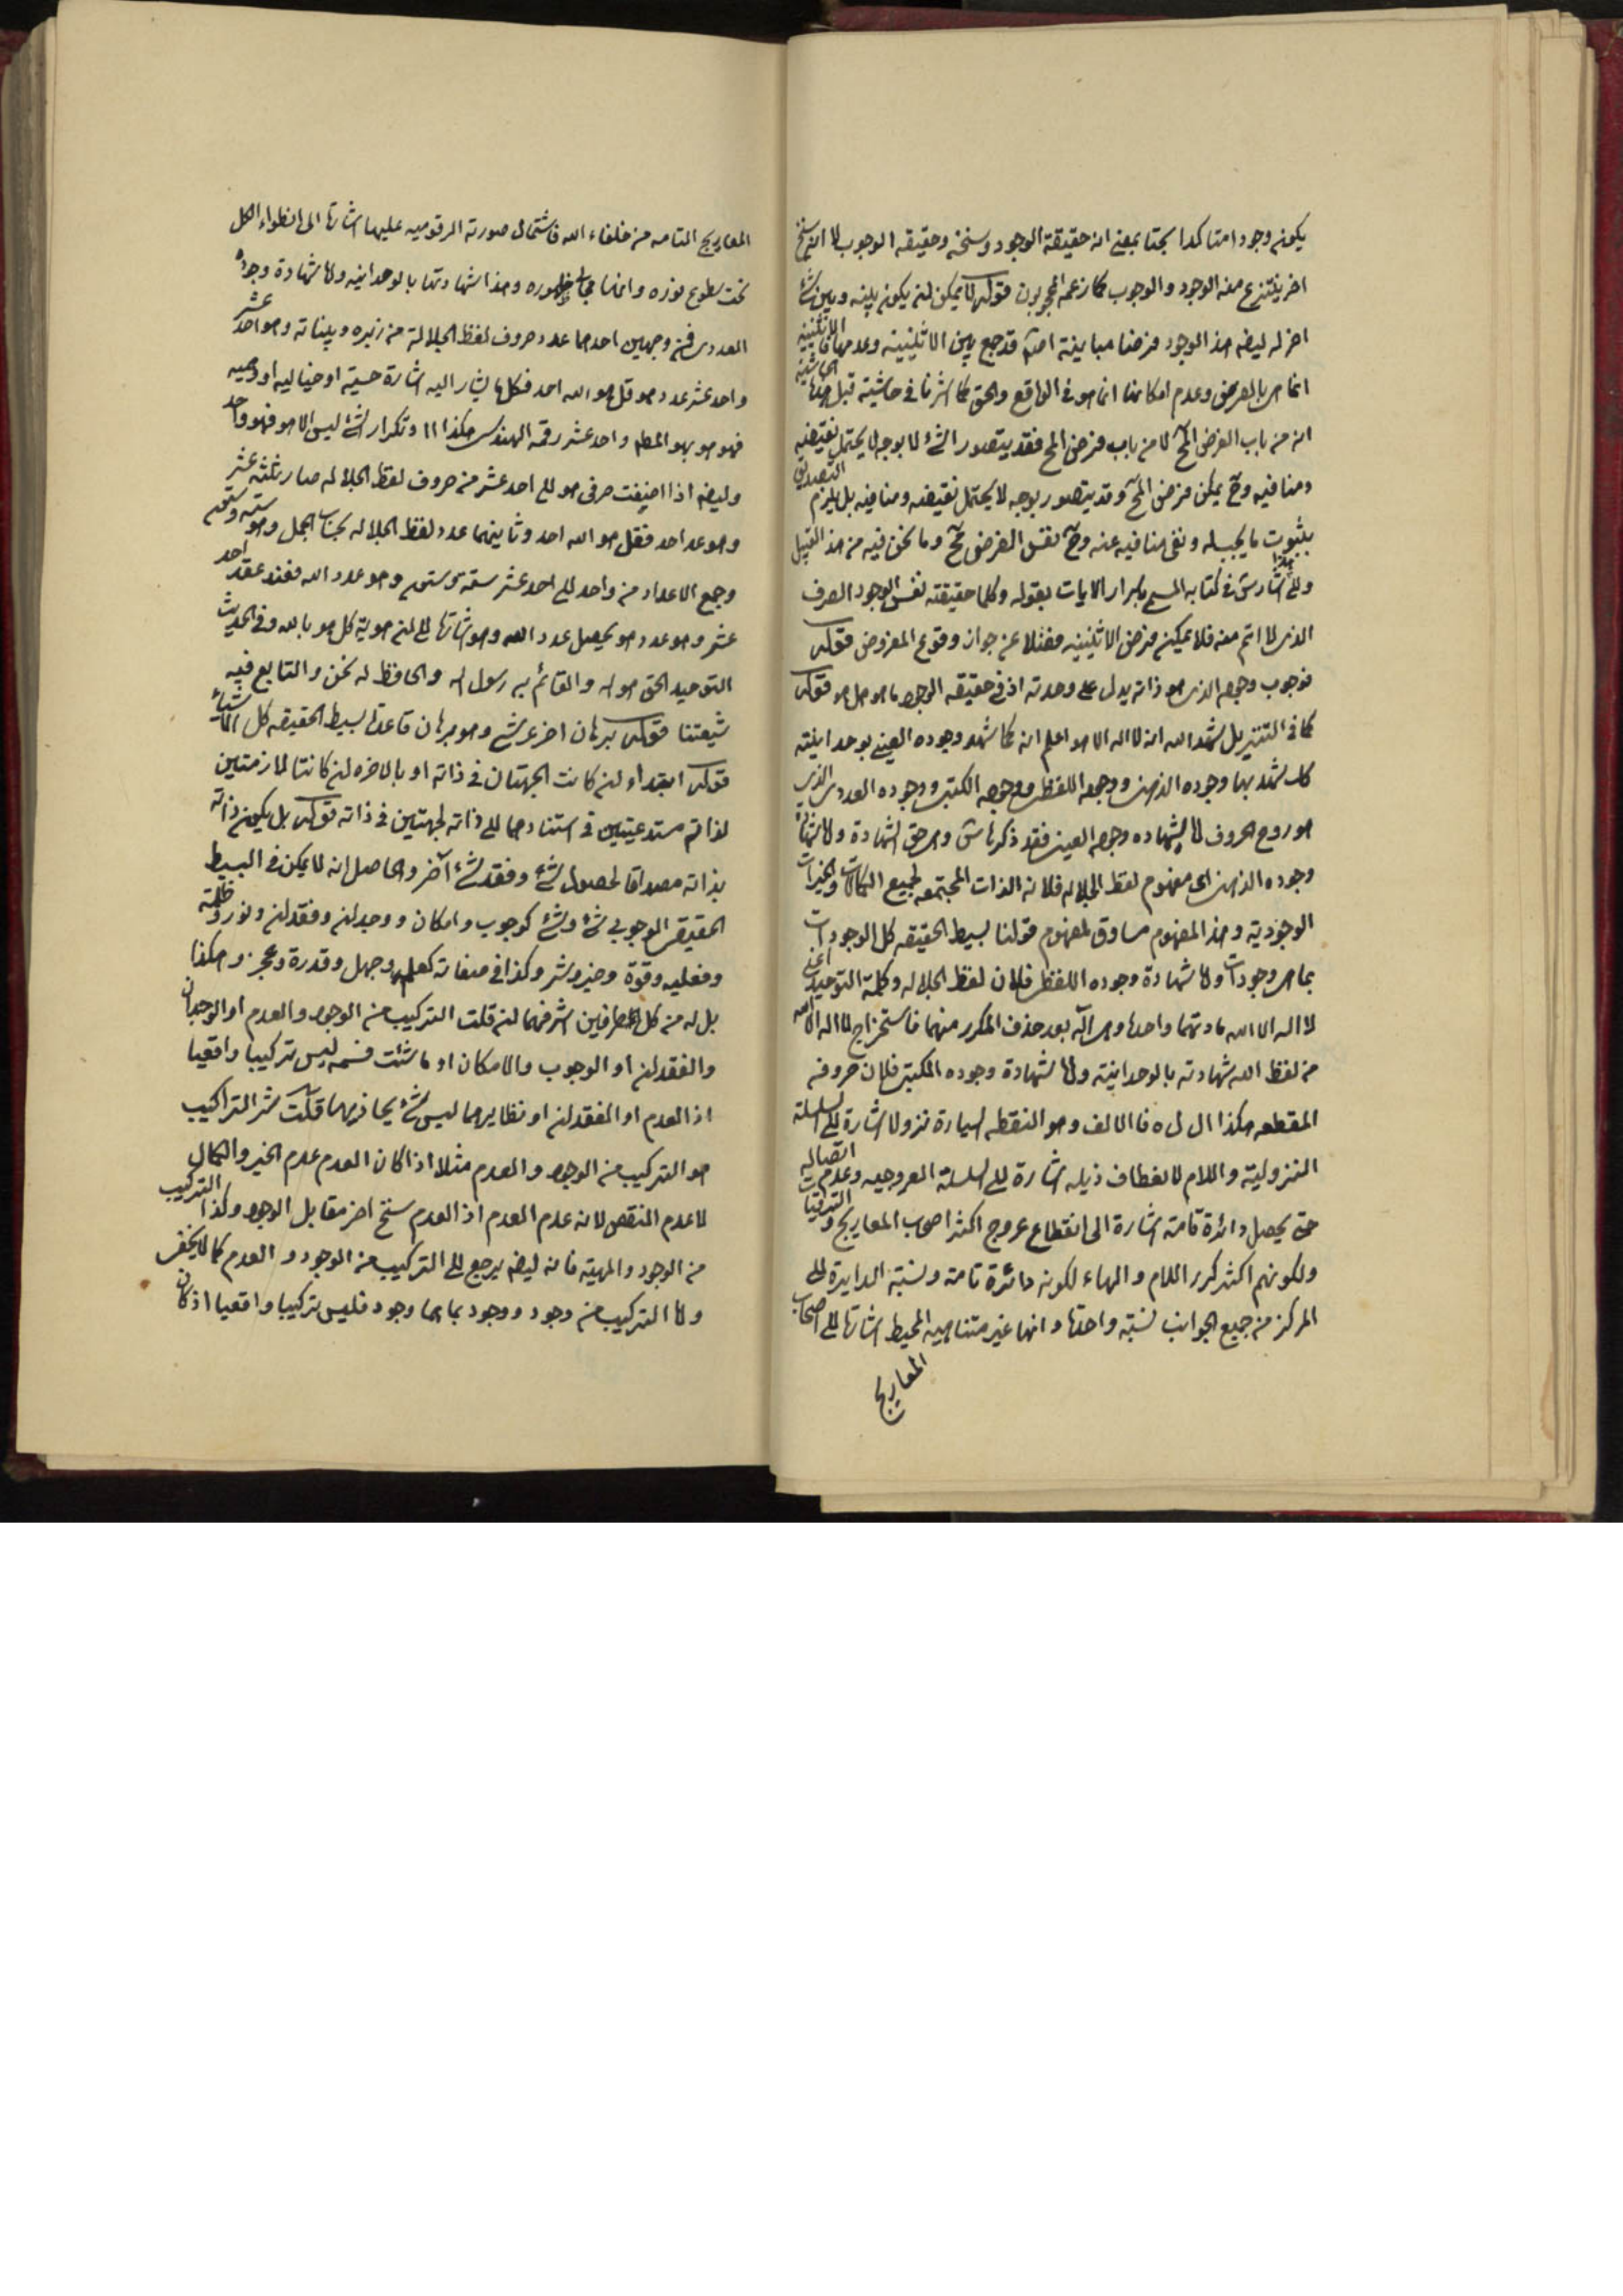 يكون وجودا متاكدا بحتا بمعنى انه حقيقة الوجود وسنخه وحقيقه الوجوب لا انه سنخ
اخر ينتزع منه الوجود والوجوب كما زعمه المحجوبون قوله لا يمكن ان يكون بينه وبين شئ
اخر له ايضا هذا الوجود فرضا مباينة اصلا قد جمع بين الاثنينية وعدمها فالاثنينيه
انما هى بالفرض وعدم امكانها انما هو فى الواقع والحق كما اشرنا فى حاشية قبل هذه الحاشية
انه من باب الفرض المح لا من باب فرض المح فقد يتصور الشئ لا بوجه لا يحتمل نقيضه
ومنافيه وح يمكن فرض المح وقد يتصور بوجه لا يحتمل نقيضه ومنافيه بل يلزم التصديق
بثبوت ما يجب له ونفى منافيه عنه وح نفس الفرض مح وما نحن فيه من هذا القبيل
والى هذا اشار س فى كتابه المسمى باسرار الايات بقوله وكلما حقيقته نفس الوجود الصرف
الذى لا اتم منه فلا يمكن فرض الاثنينيه فضلا عن جواز وقوع المفروض قوله
فوجوب وجوده الذى هو ذاته يدل على وحدته اذ فى حقيقه الوجود ما هو هل هو قوله
كما فى التنزيل شهد الله انه لا اله الا هو اعلم انه كما شهد وجوده العينى بوحدانيته
كك شهد بها وجوده الذهنى ووجوده اللفظى ووجوده الكتبى ووجوده العددى الذى
هو روح الحروف اما شهاده وجوده العينى فقد ذكرها س وهى حق الشهادة واما شهادة
وجوده الذهنى اى مفهوم لفظ الجلاله فلانه الذات المجتمعه لجميع الكمالات والخيرات
الوجودية وهذا المفهوم مساوق لمفهوم قولنا بسيط الحقيقه كل الوجودات
بما هى وجودات واما شهادة وجوده اللفظى فلان لفظ الجلاله وكلمة التوحيد اعنى
لا اله الا الله مادتهما واحدة وهى اله بعد حذف المكرر منهما فاستخراج لا اله الا الله
من لفظ الله شهادته بالوحدانية واما شهادة وجوده الكتبى فلان حروفه
المقطعه هكذا ال ل ه فالالف وهو النقطه السيارة نزولا اشارة الى السلسلة
النزولية واللام لانعطاف ذيله اشارة الى السلسلة العروجيه وعدم اتصاله
حتى يحصل دائرة تامة اشارة الى انقطاع عروج اكثر اصحاب المعاريج والترقيات
ولكونهم اكثر كرر اللام والهاء لكونه دائرة تامة ونسبة الدايرة الى
المركز من جميع الجوانب نسبة واحدة وانها غير متناهيه المحيط اشارة الى اصحاب
المعاريج
المعاريج التامه من خلفاء الله فاشتمال صورته الرقوميه عليها اشارة الى انطواء الكل
تحت سطوع نوره وانها مجالى ظهوره وهذا شهادتها بالوحدانيه واما شهادة وجوده
العددى فمن وجهين احدهما عدد حروف لفظ الجلالة من زبره وبيناته وهو احد عشر
واحد عشر عدد هو قل هو الله احد فكل ما يشار اليه اشارة حسية او خياليه او وهميه
فهو هو بهو المطلق واحد عشر رقمه الهندسى هكذا ١١ وتكرار الشئ ليس الا هو فهو واحد
وايضا اذا اضيفت حرفى هو الى احد عشر من حروف لفظ الجلاله صار ثلثة عشر
وهو عد احد فقل هو الله احد وثانيهما عدد لفظ الجلاله بحساب الجمل وهو ستة وستون
وجمع الاعداد من واحد الى احد عشر ستة وستون وهو عدد الله فعند عقد احد
عشر وهو عدد هو يحصل عدد الله وهو اشارة الى ان هوية كل هو بالله وفى الحديث
التوحيد الحق هو الله والقائم به رسول الله والحافظ له نحن والتابع فيه
شيعتنا قوله برهان اخر عرشى وهو برهان قاعدة بسيط الحقيقه كل الاشياء
قوله ابتداء ان كانت الجهتان فى ذاته او بالاخره ان كانتا لازمتين
لذاته مستدعيتين فى استنادهما الى ذاته لجهتين فى ذاته قوله بل يكون ذاته
بذاته مصداقا لحصول شئ وفقد شئ آخر والحاصل انه لا يمكن فى البسيط
الحقيقى الوجوبى شئ وشئ كوجوب وامكان ووجدان وفقدان ونور وظلمة
وفعليه وقوة وخير وشر وكذا فى صفاته كعلم وجهل وقدرة وعجز وهكذا
بل له من كل الطرفين اشرفهما ان قلت التركيب من الوجود والعدم او الوجدان
والفقدان او الوجوب والامكان او ما شئت فسمه ليس تركيبا واقعيا
اذ العدم او الفقدان او نظايرهما ليس شئ يحاذيهما قلت شر التراكيب
هو التركيب من الوجود والعدم مثلا اذا كان العدم عدم الخير والكمال
لا عدم النقص لانه عدم العدم اذ العدم سنخ اخر مقابل الوجود وكذا التركيب
من الوجود والمهية فانه ايضا يرجع الى التركيب من الوجود والعدم كما لا يخفى
واما التركيب من وجود ووجود بما هما وجود فليس تركيبا واقعيا اذ كان